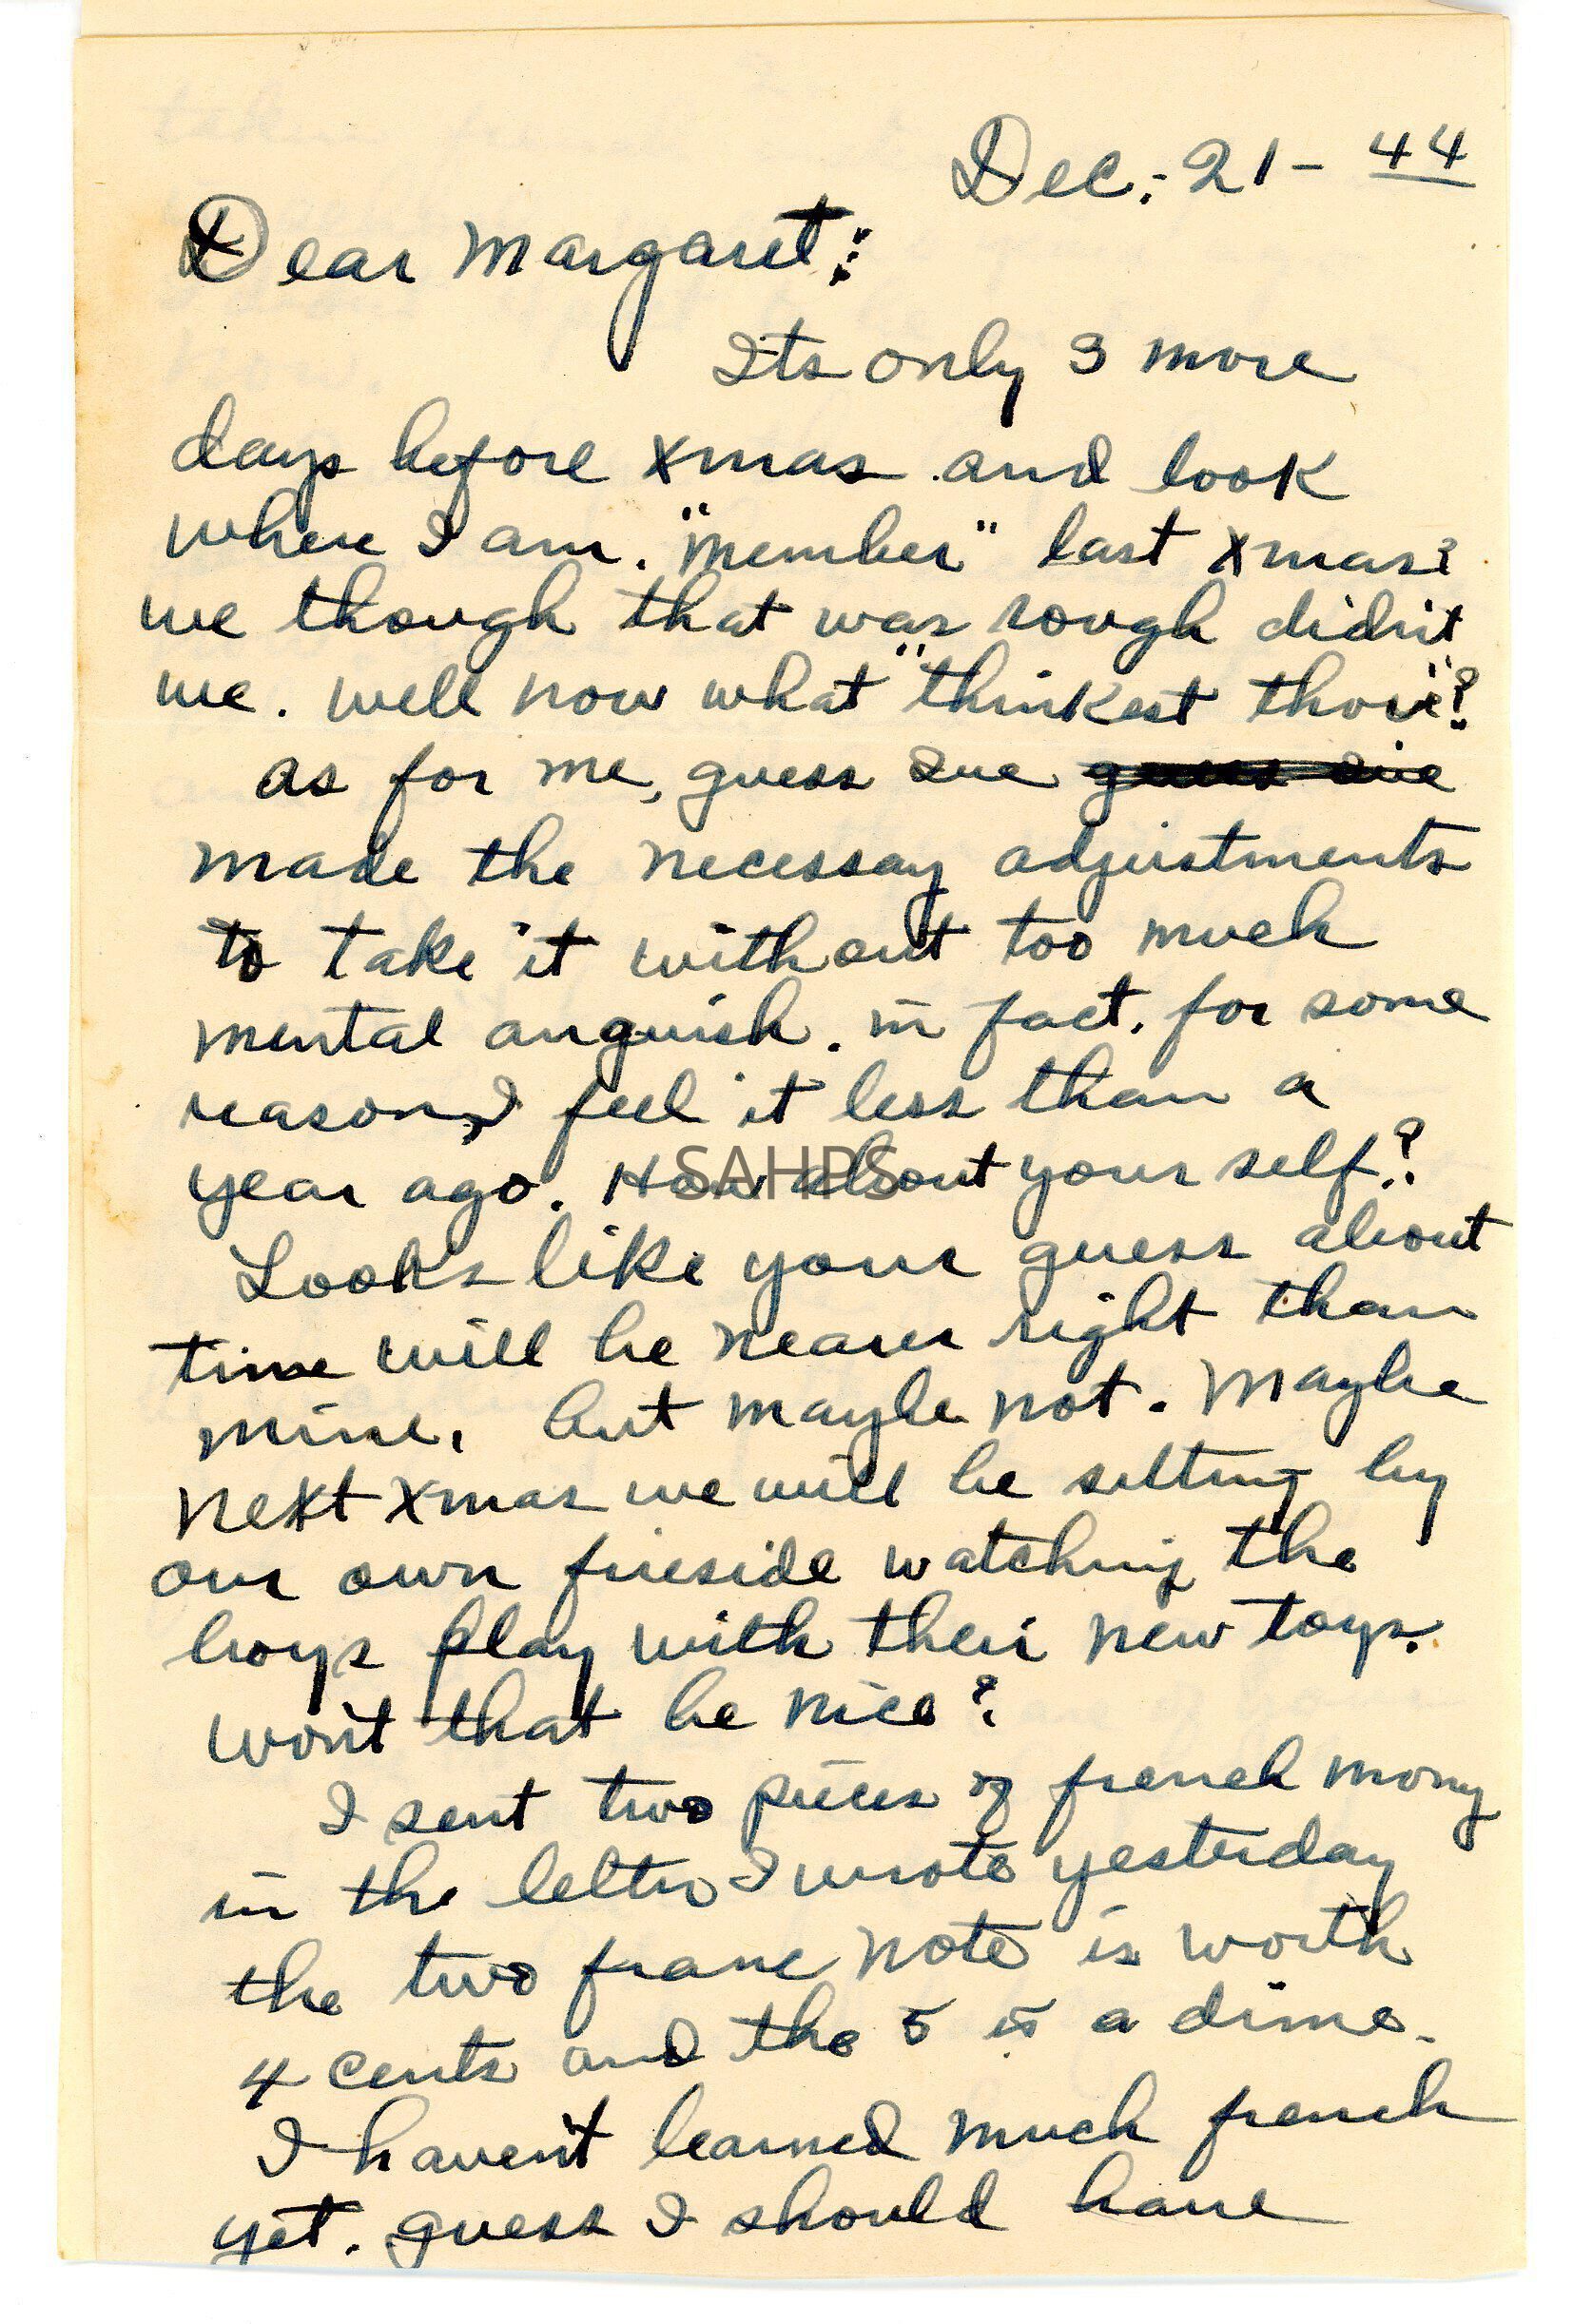 Dec. - 21 - 44
Dear Margaret:
Its only 3 more
days before Xmas and look
where I am. "member" last Xmas?
we though that was rough didn't
we. Well now what "thinkest thou"?
As for me, guess Ive guess ive
made the necessay adjustments
to take it without too much
mental anguish. in fact, for some
reason, I feel it less than a
year ago. How about your self?
SAHPS
Looks like your guess about
time will be nearer right than
mine, but maybe not. Maybe
next Xmas we will be sitting by
our own fireside watching the
boys play with their new toys.
Won't that be nice?
I sent two pieces of french mony
in the letter I wrote yesterday
the two franc note is worth
4 cents and the 5 is a dime.
I haven't learned much french
yet. guess I should have